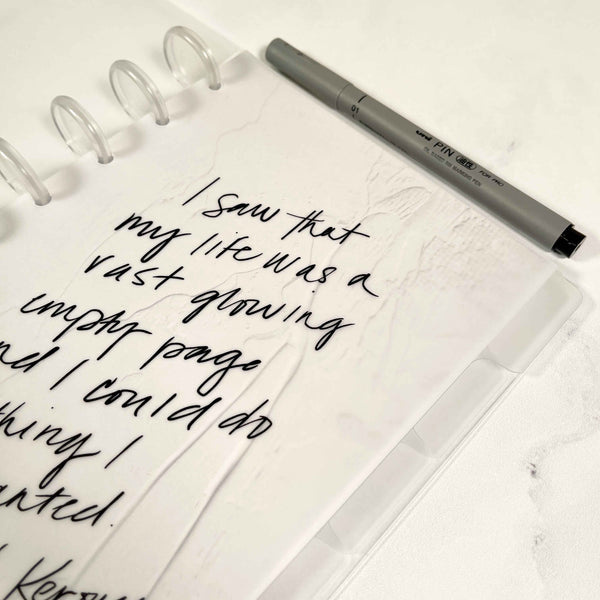 I saw that
my life was a
vast glowing
empty page
nd I could do
thing I
anted.
Kerou
01
uni PIN